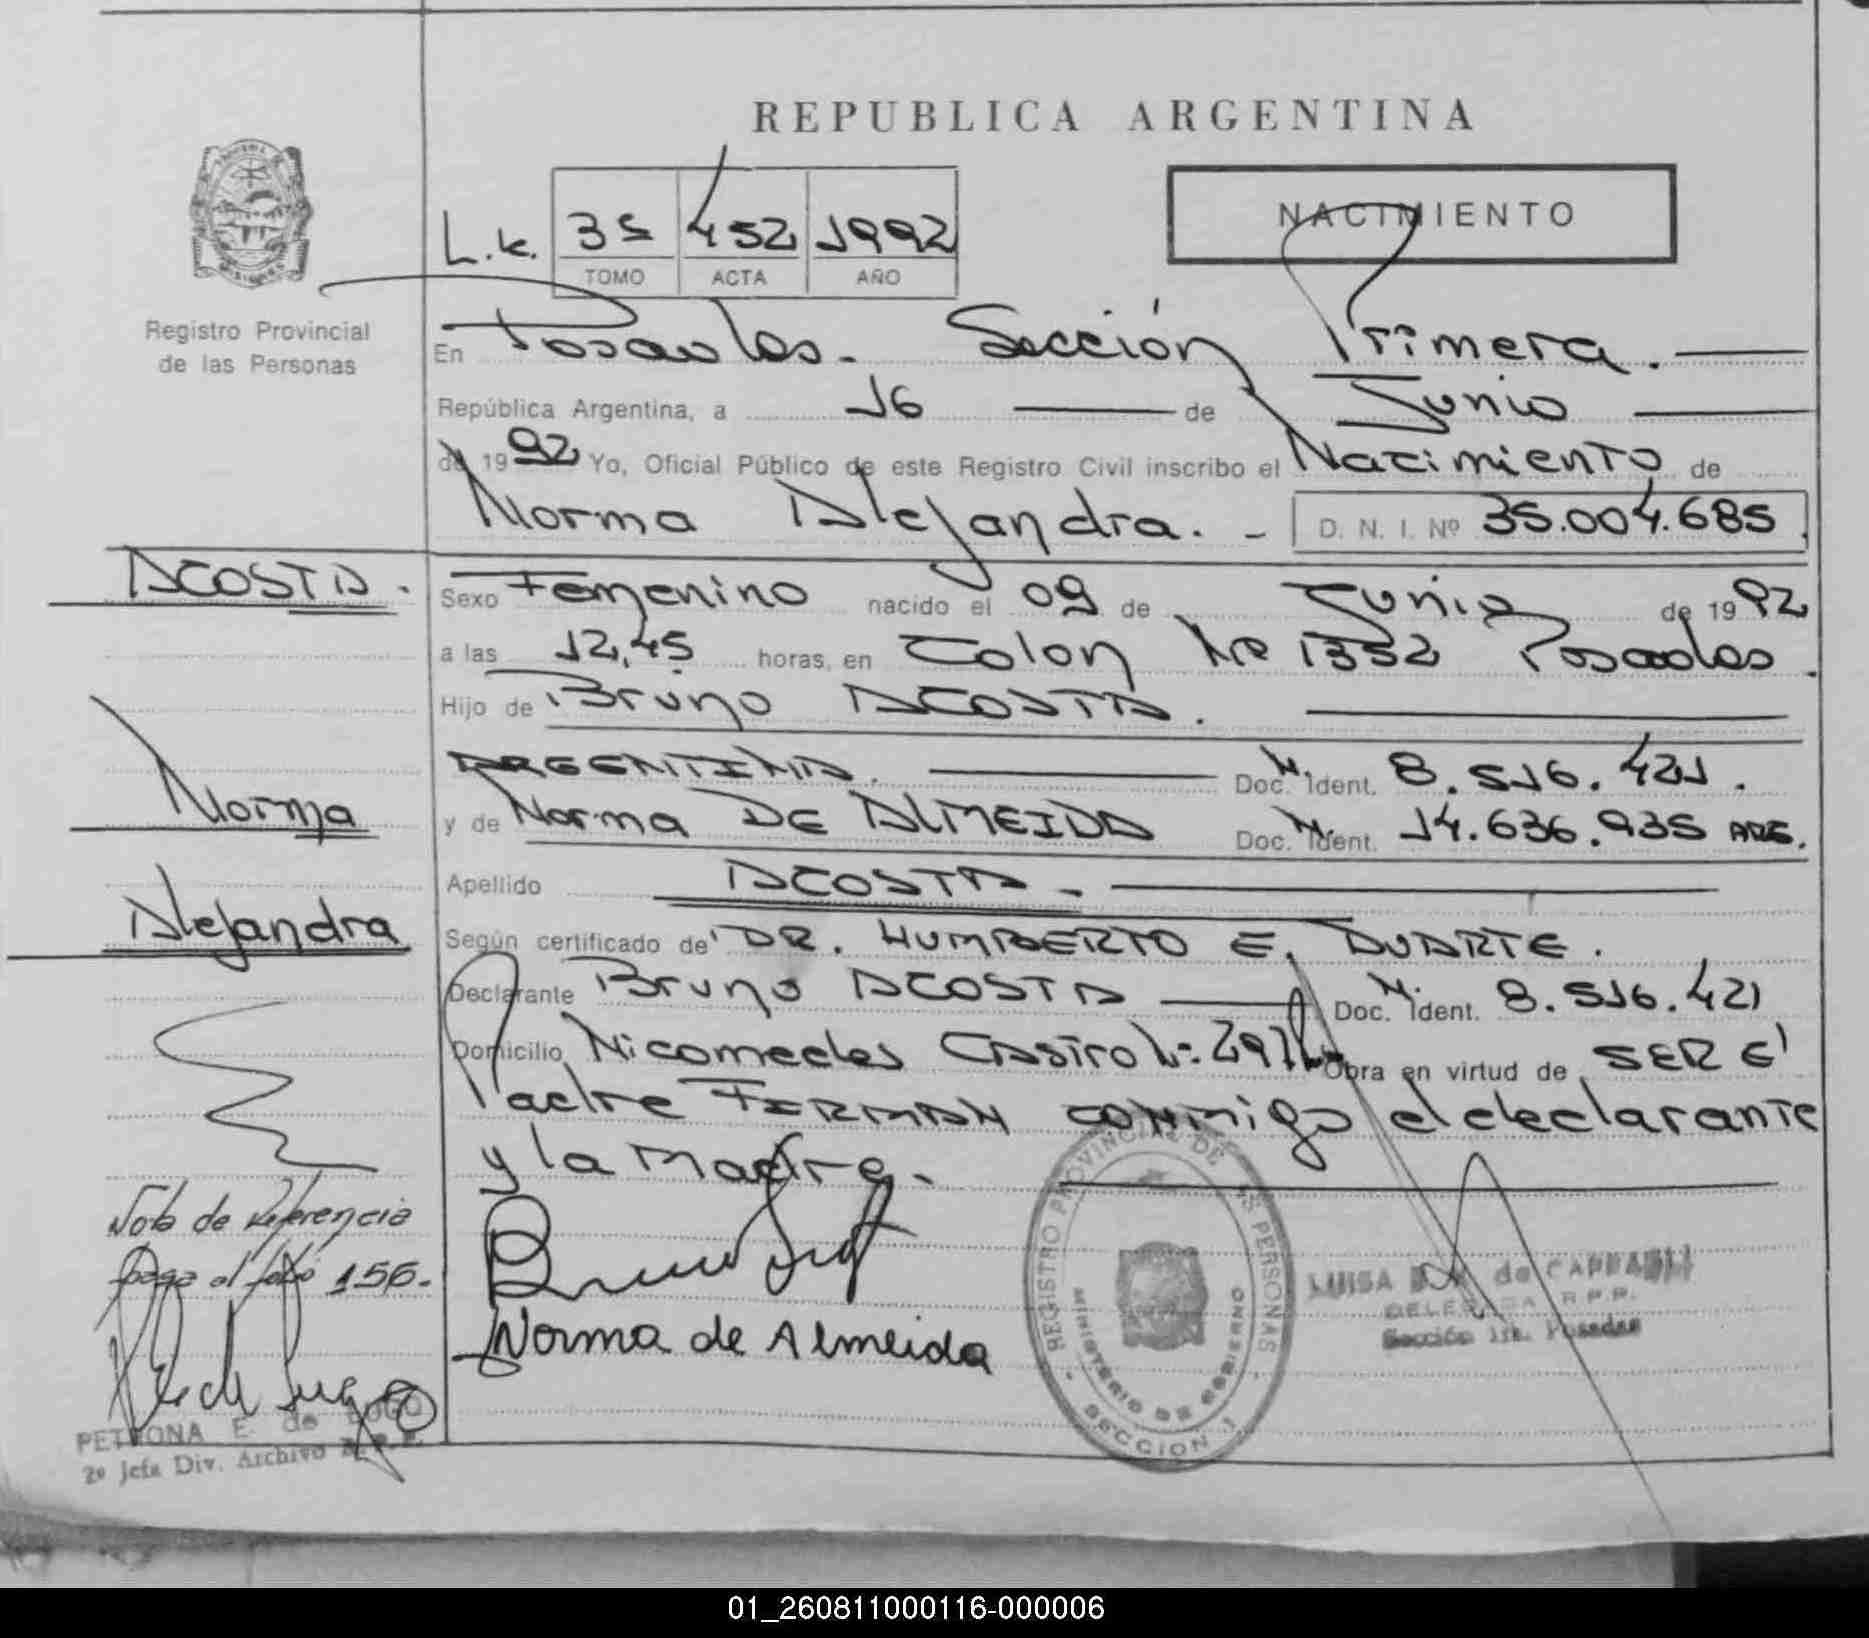 REPUBLICA ARGENTINA
NACIMIENTO
L.k. 3s 452 1992
TOMO ACTA AÑO
Registro Provincial
de las Personas
En Posadas. Sección Primera.
República Argentina, a 16 de Junio
de 1992 Yo, Oficial Público de este Registro Civil inscribo el Nacimiento de
Norma Alejandra. - D. N. I. Nº 35.004.685
ACOSTA.
Sexo Femenino nacido el 09 de Junio de 1992
a las 12,45 horas, en Colon Nº 1352 Posadas.
Hijo de Bruno ACOSTA.
ARGENTINA. Doc. Ident. 8.516.421.
Norma
y de Norma DE ALMEIDA Doc. Ident. 14.636.935 ARG.
Apellido ACOSTA.-
Alejandra
Según certificado de DR. HUMBERTO E. DUARTE.
Declarante Bruno ACOSTA Doc. Ident. 8.516.421
Domicilio Nicomedes Castro Obra en virtud de SER El
Padre FIRMAN conmigo el declarante
y la madre.
Nota de Referencia
pasa al folio 156.
Norma de Almeida
REGISTRO PROVINCIAL DE LAS PERSONAS
MINISTERIO DE GOBIERNO
SECCION 1
LUISA de
DELEGADA R.P.P.
Sección 1ra. Posadas
PETRONA E. de LUGO
2º Jefa Div. Archivo R.P.P.
01_260811000116-000006